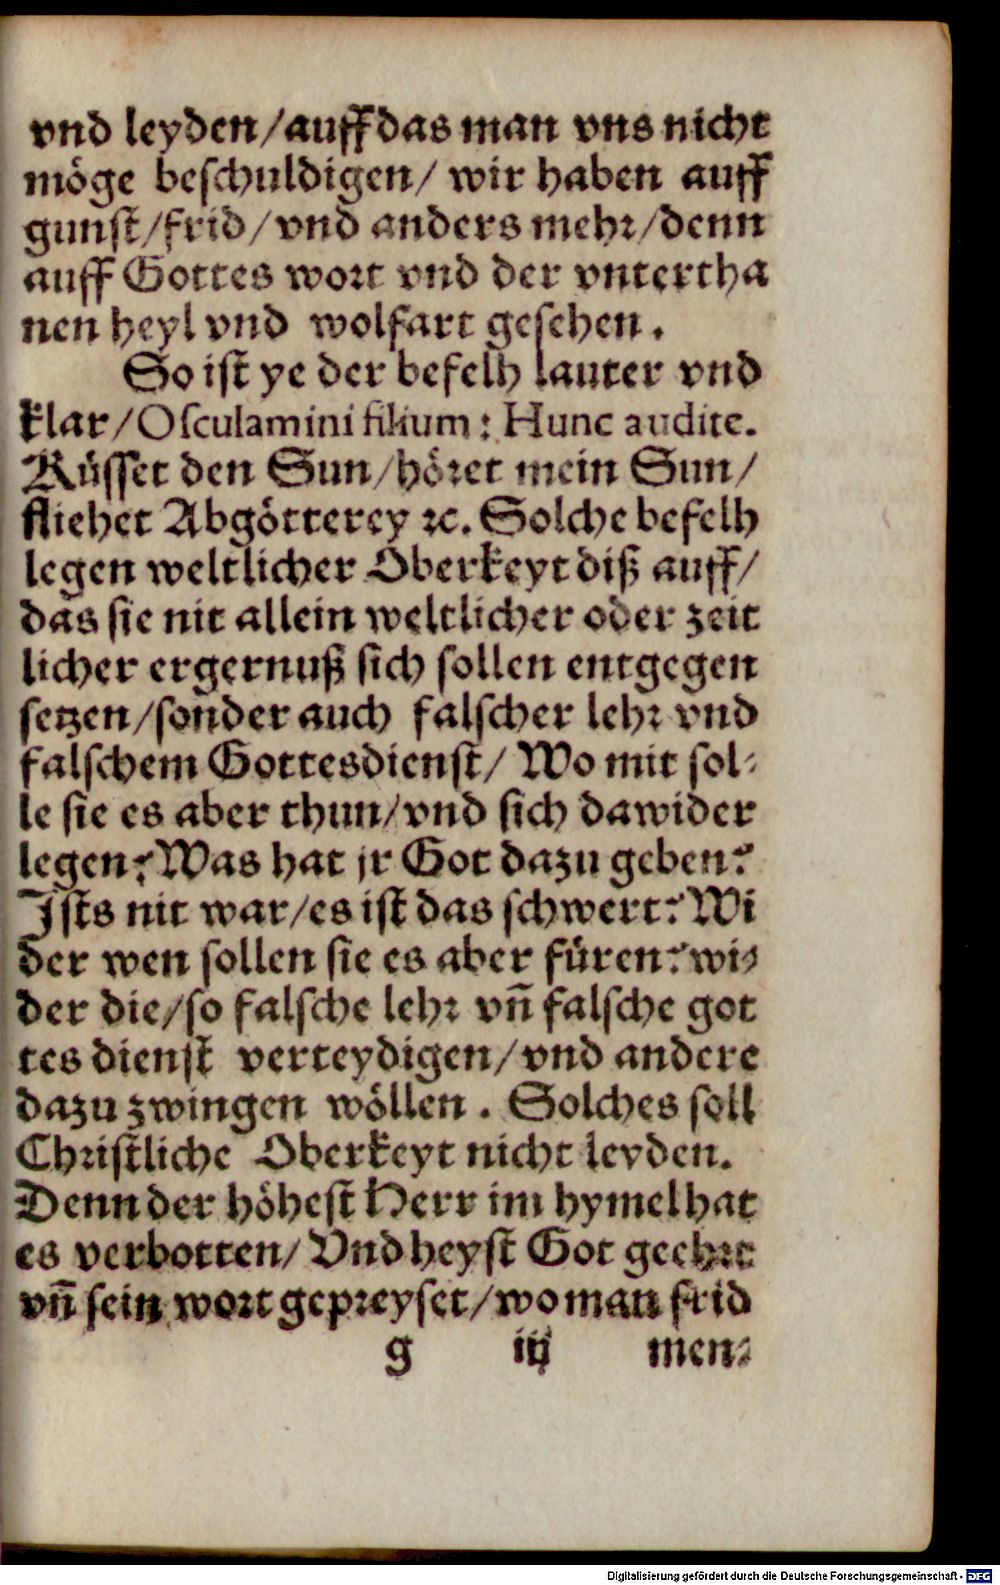 vnd leyden/auff das man vns nicht
möge beschuldigen/ wir haben auff
gunst/frid/ vnd anders mehr/denn
auff Gottes wort vnd der vntertha
nen heyl vnd wolfart gesehen.
So ist ye der befelh lauter vnd
klar/Osculamini filium: Hunc audite.
Küsset den Sun/höret mein Sun/
fliehet Abgötterey ꝛc. Solche befelh
legen weltlicher Oberkeyt diß auff/
das sie nit allein weltlicher oder zeit
licher ergernuß sich sollen entgegen
setzen/sonder auch falscher lehr vnd
falschem Gottesdienst/ Wo mit sol-
le sie es aber thun/vnd sich dawider
legen? Was hat jr Got dazu geben?
Ists nit war/es ist das schwert? Wi
der wen sollen sie es aber füren? wi-
der die/so falsche lehr vn̄ falsche got
tes dienst verteydigen/vnd andere
dazu zwingen wöllen. Solches soll
Christliche Oberkeyt nicht leyden.
Denn der höhest Herr im hymel hat
es verbotten/ Vnd heyst Got geehrt
vn̄ sein wort gepreyset/wo man frid
g iij men-
Digitalisierung gefördert durch die Deutsche Forschungsgemeinschaft - DFG